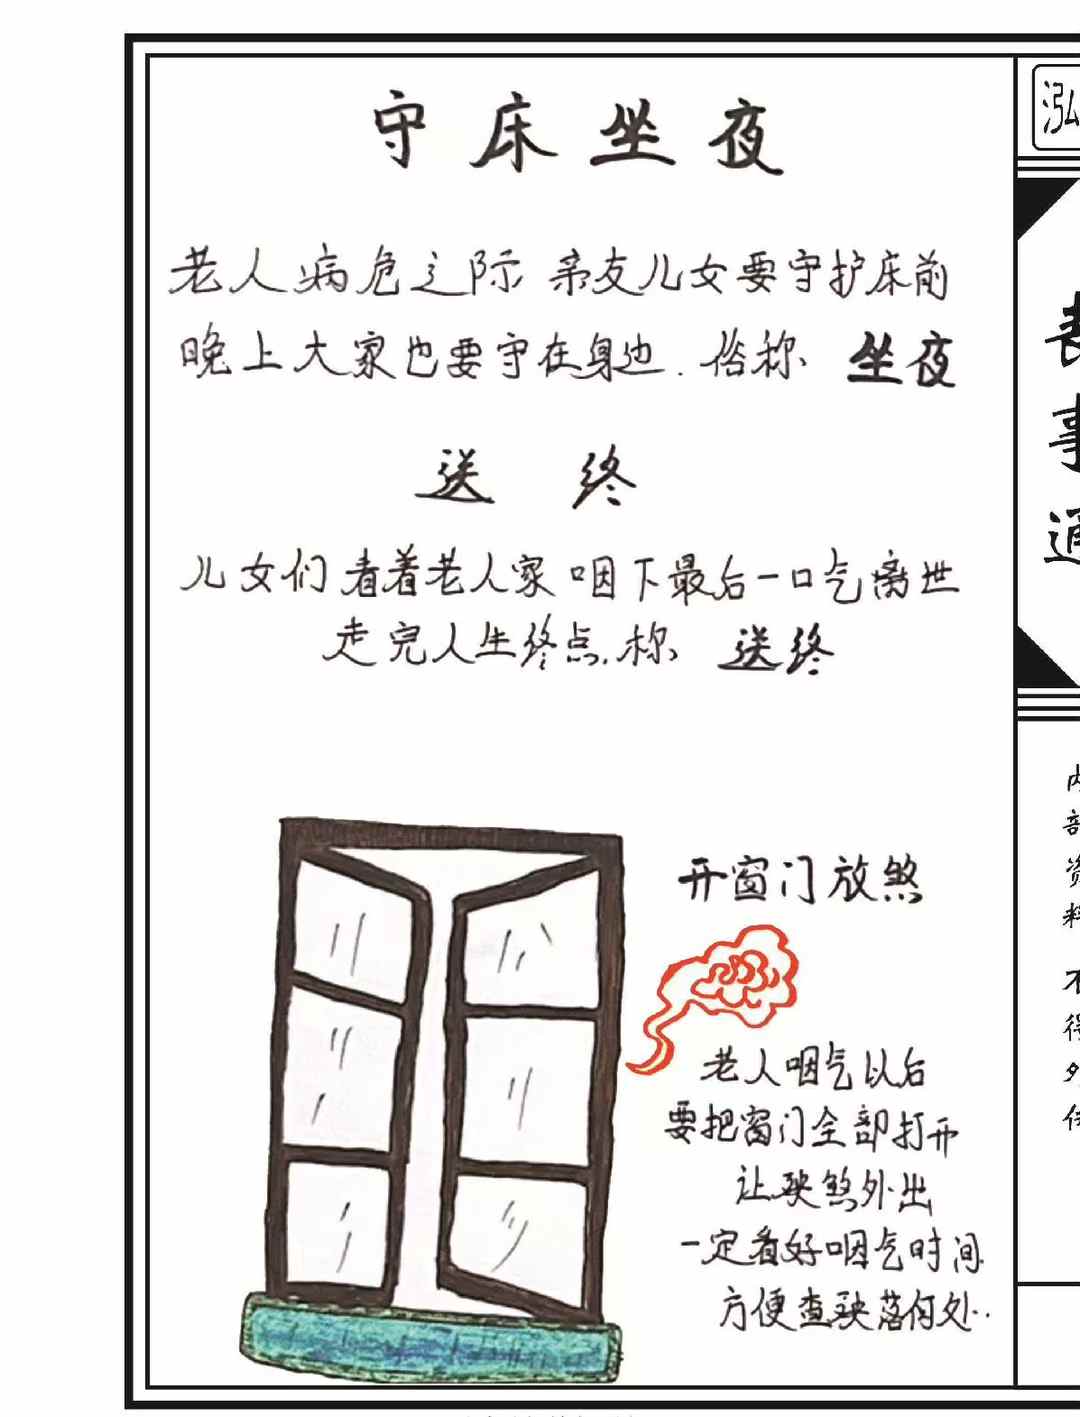 守床坐夜
老人病危之际 亲友儿女要守护床前
晚上大家也要守在身边.俗称 坐夜
送 终
儿女们看着老人家咽下最后一口气离世
走完人生终点.称 送终
开窗门放煞
老人咽气以后
要把窗门全部打开
让殃煞外出
一定看好咽气时间
方便查殃落何处.
泓
丧事通
内部资料
不得外传